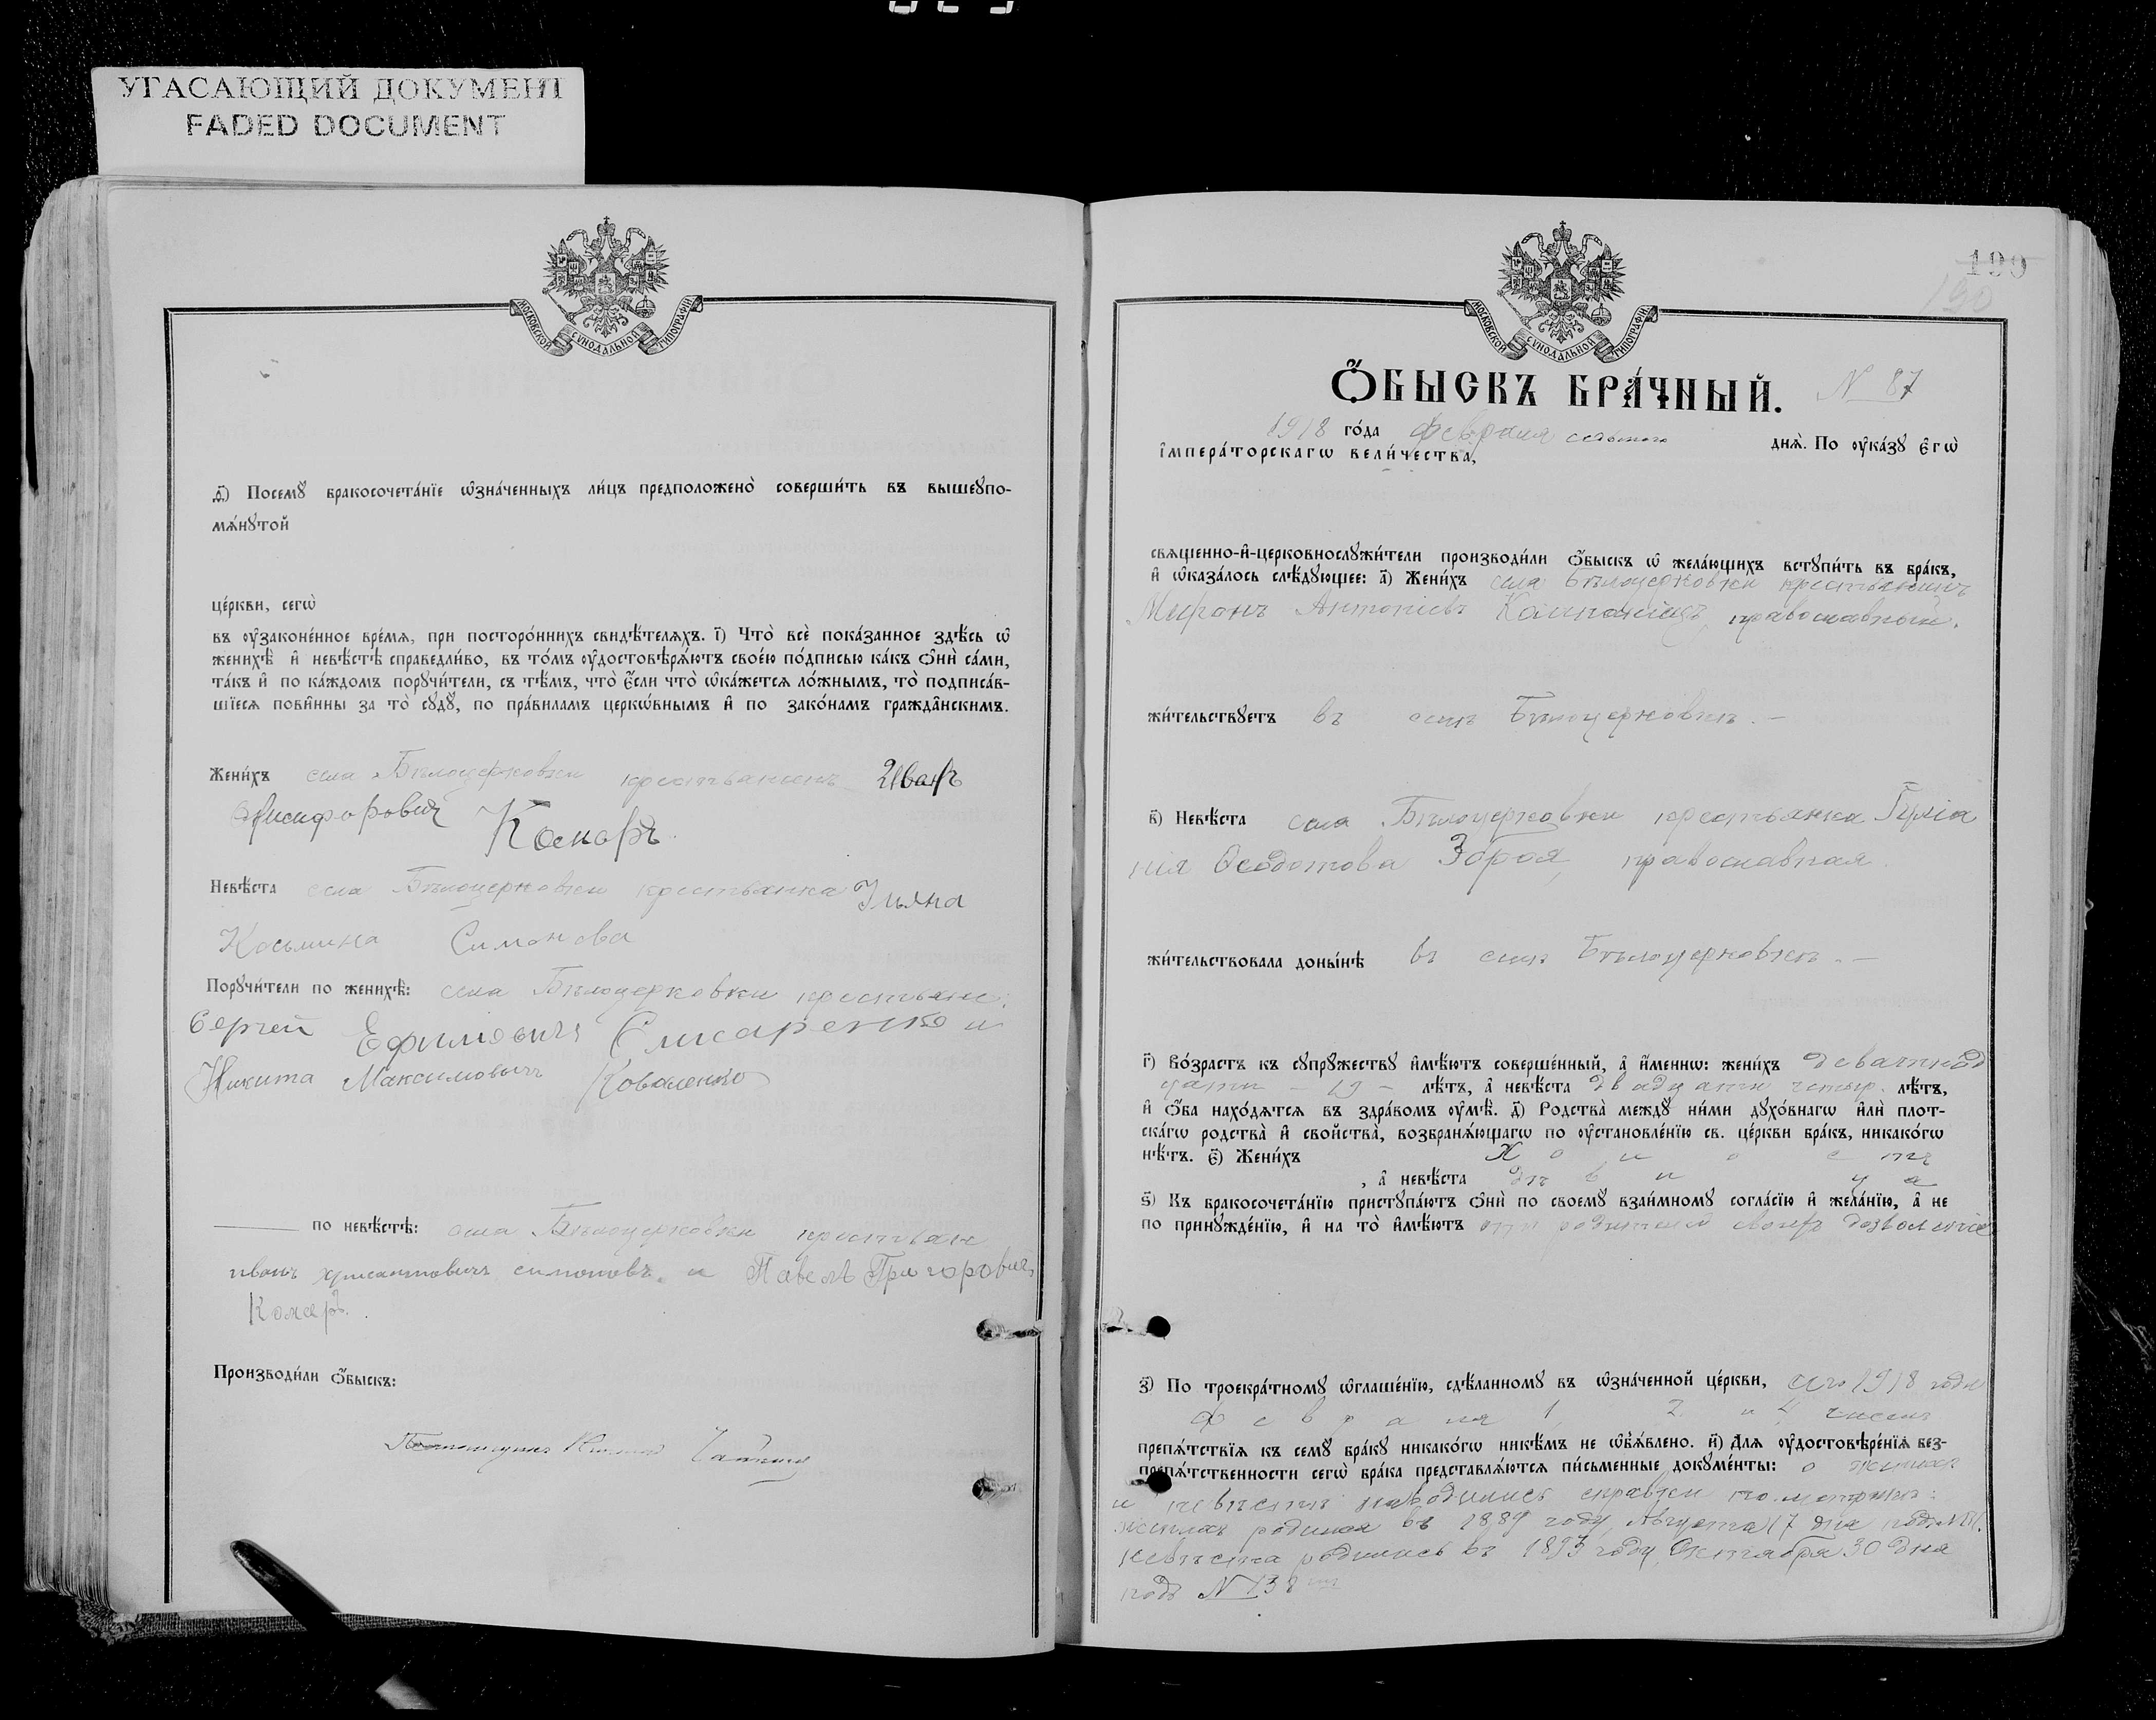 УГАСАЮЩИЙ ДОКУМЕНТ
FADED DOCUMENT
МОСКОВСКОЙ СѴНОДАЛЬНОЙ ТИПОГРАФІИ
д҃) Посемꙋ бракосочета́нїе ѡ҆зна́ченныхъ ли́цъ предположено̀ соверши́ть въ вышеꙋпо-
мѧ́нꙋтой
це́ркви, сегѡ̀
въ оу҆зако́нное вре́мѧ, при посторо́ннихъ свидѣ́телѧхъ. і҃) Что̀ всѐ пока́занное здѣ́сь ѡ҆
женихѣ̀ и҆ невѣ́стѣ справедли́во, въ то́мъ оу҆достовѣрѧ́ютъ свое́ю по́дписью ка́къ ѻ҆нѝ са́ми,
та́къ и҆ по ка́ждомъ порꙋчи́тели, съ тѣ́мъ, что̀ є҆́сли что̀ ѡ҆ка́жетсѧ ло́жнымъ, то̀ подписа́в-
шїесѧ пови́нны за то̀ сꙋдꙋ̀, по пра́виламъ церко́внымъ и҆ по зако́намъ гражда́нскимъ.
Жени́хъ села Бѣлоцерковки крестьянинъ Иванъ
Никифоровичъ Комаръ
Невѣ́ста села Бѣлоцерковки крестьянка Ульяна
Косьмина Симонова
Порꙋчи́тели по женихѣ̀: села Бѣлоцерковки крестьяне:
Сергей Ефимовичъ Слисаренко и
Никита Максимовичъ Коваленко
по невѣ́стѣ: села Бѣлоцерковки крестьяне
иванъ хрисантовичъ симоновъ и Павелъ Григоровичъ
Комаръ.
Производи́ли ѻ҆́быскъ:
199
190
МОСКОВСКОЙ СѴНОДАЛЬНОЙ ТИПОГРАФІИ
Ѻ҆́БЫСКЪ БРА́ЧНЫЙ. N 87
1918 го́да Февраля седьмого днѧ̀. По оу҆ка́зꙋ є҆гѡ̀
і҆мпера́торскагѡ вели́чества,
свѧще́нно-и҆-церковнослꙋжи́тели производи́ли ѻ҆́быскъ ѡ҆ жела́ющихъ встꙋпи́ть въ бра́къ,
и҆ ѡ҆каза́лось слѣ́дꙋющее: а҃) Жени́хъ села Бѣлоцерковки крестьянинъ
Миронъ Антоніевъ Компаніецъ, православный.
жи́тельствꙋетъ въ селѣ Бѣлоцерковкѣ. –
в҃) Невѣ́ста села Бѣлоцерковки крестьянка
Ѳеодотова Зброя, православная
жи́тельствовала доны́нѣ въ селѣ Бѣлоцерковкѣ. –
г҃) Во́зрастъ къ сꙋпрꙋ́жествꙋ и҆мѣ́ютъ соверше́нный, а҆ и҆́меннѡ: жени́хъ девятнад
цати – 19 – лѣ́тъ, а҆ невѣ́ста двадцати четыр. лѣ́тъ,
и҆ ѻ҆́ба нахо́дѧтсѧ въ здра́вомъ оу҆мѣ̀. д҃) Родства̀ междꙋ̀ ни́ми дꙋхо́внагѡ и҆лѝ плот-
ска́гѡ родства̀ и҆ сво́йства̀, возбранѧ́ющагѡ по оу҆становле́нїю св. це́ркви бра́къ, никако́гѡ
нѣ́тъ. є҃) Жени́хъ Холостъ
, а҆ невѣ́ста дѣвица
ѕ҃) Къ бракосочета́нїю пристꙋпа́ютъ ѻ҆нѝ по своемꙋ̀ взаи́мномꙋ согла́сїю и҆ жела́нїю, а҆ не
по принꙋжде́нїю, и҆ на то̀ и҆мѣ́ютъ отъ родителей своихъ дозволеніе
з҃) По троекра́тномꙋ ѡ҆глаше́нїю, сдѣ́ланномꙋ въ ѡ҆зна́ченной це́ркви, сего 1918 года
февраля 1, 2 и 4 чиселъ
препѧ́тствїѧ къ семꙋ̀ бра́кꙋ никако́гѡ никѣ́мъ не ѡ҆б̾ѧ́влено. и҃) Для оу҆достовѣре́нїѧ без-
препѧ́тственности сегѡ̀ бра́ка представлѧ́ютсѧ пи́сьменные докꙋме́нты: о женихѣ
и невѣстѣ наводились справки по метрик.:
женихъ родился въ 1889 году Августа 17 дня подъ N
невѣста родилась въ 1893 году Октября 30 дня
подъ N 138